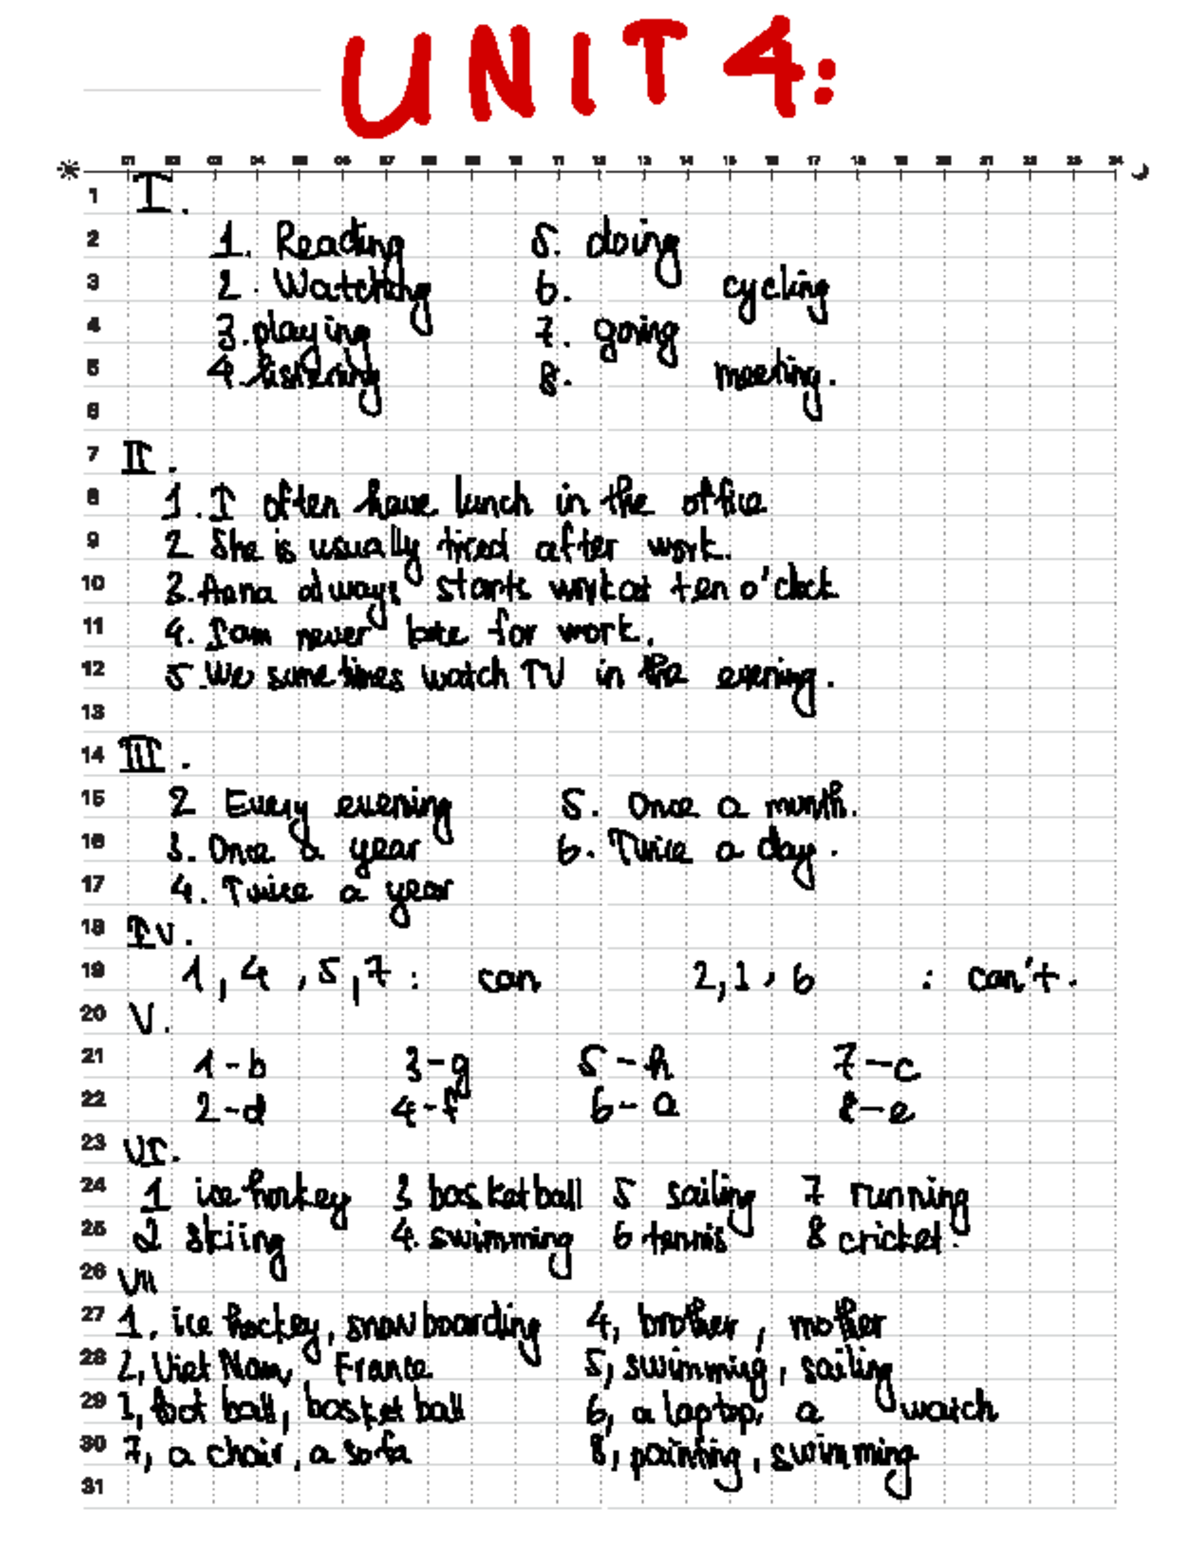 UNIT 4:
01 02 03 04 05 06 07 08 09 10 11 12 13 14 15 16 17 18 19 20 21 22 23 24
1 I.
2 1. Reading 5. doing
3 2. Watching 6. cycling
4 3. playing 7. going
5 4. listening 8. meeting.
6
7 II.
8 1. I often have lunch in the office
9 2 She is usually tired after work.
10 3. Anna always starts work at ten o'clock
11 4. I am never late for work.
12 5. We sometimes watch TV in the evening.
13
14 III.
15 2 Every evening 5. Once a month.
16 3. Once a year 6. Twice a day.
17 4. Twice a year
18 IV.
19 1, 4, 5, 7: can 2, 3, 6 : can't.
20 V.
21 1-b 3-g 5-h 7-c
22 2-d 4-f 6-a 8-e
23 VI.
24 1 ice hockey 3 basketball 5 sailing 7 running
25 2 skiing 4. swimming 6 tennis 8 cricket.
26 VII
27 1, ice hockey, snowboarding 4, brother, mother
28 2, Viet Nam, France 5, swimming, sailing
29 3, foot ball, basket ball 6, a laptop, a watch
30 7, a chair, a sofa 8, painting, swimming
31